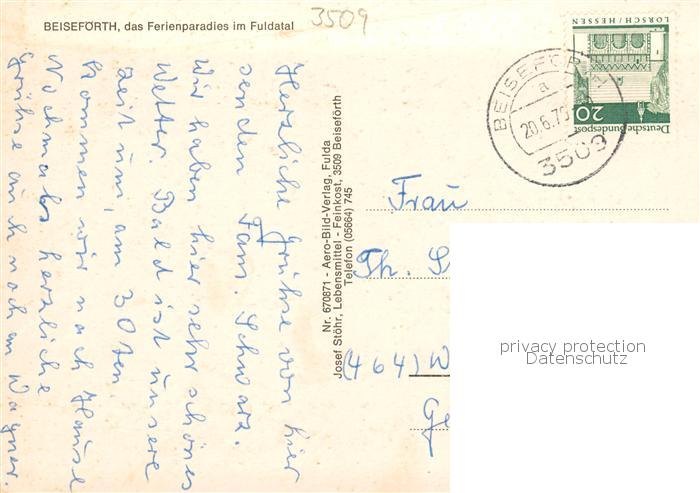 BEISEFÖRTH, das Ferienparadies im Fuldatal
3509
Herzliche Grüße von hier
senden Fam. Schwarz.
Wir haben hier sehr schönes
Wetter. Bald ist unsere
Zeit um, am 30ten
kommen wir nach Hause
Nochmals herzliche
Grüße auch noch an Wagner.
Nr. 670871 - Aero-Bild-Verlag, Fulda
Josef Stöhr, Lebensmittel - Feinkost, 3509 Beiseförth
Telefon (05664) 745
LORSCH/HESSEN
20
Deutsche Bundespost
BEISEFÖRTH
a
20.6.70
3509
Frau
Th. S
(464) W
Ge
privacy protection
Datenschutz